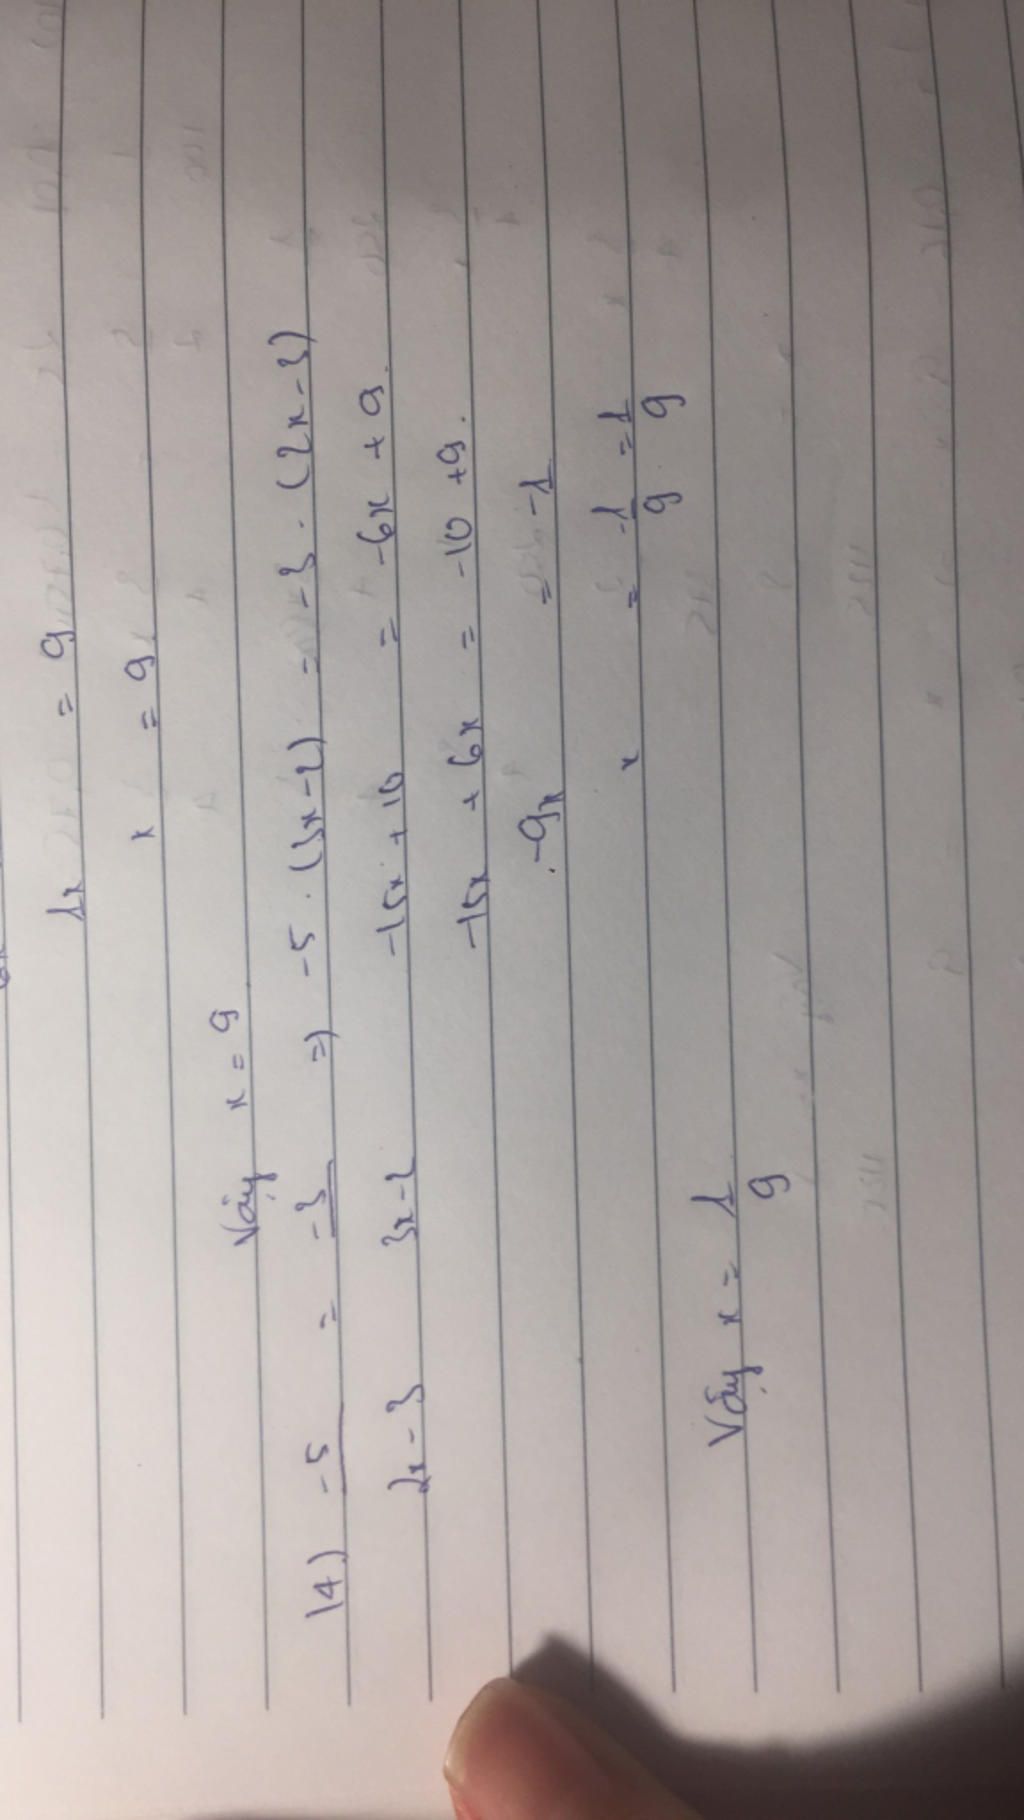 1x = 9
x = 9
Vậy x = 9
14) -5/2x-3 = -3/3x-2 => -5 . (3x-2) = -3 . (2x-3)
-15x + 10 = -6x + 9.
-15x + 6x = -10 + 9.
-9x = -1
x = -1/9 = 1/9
Vậy x = 1/9